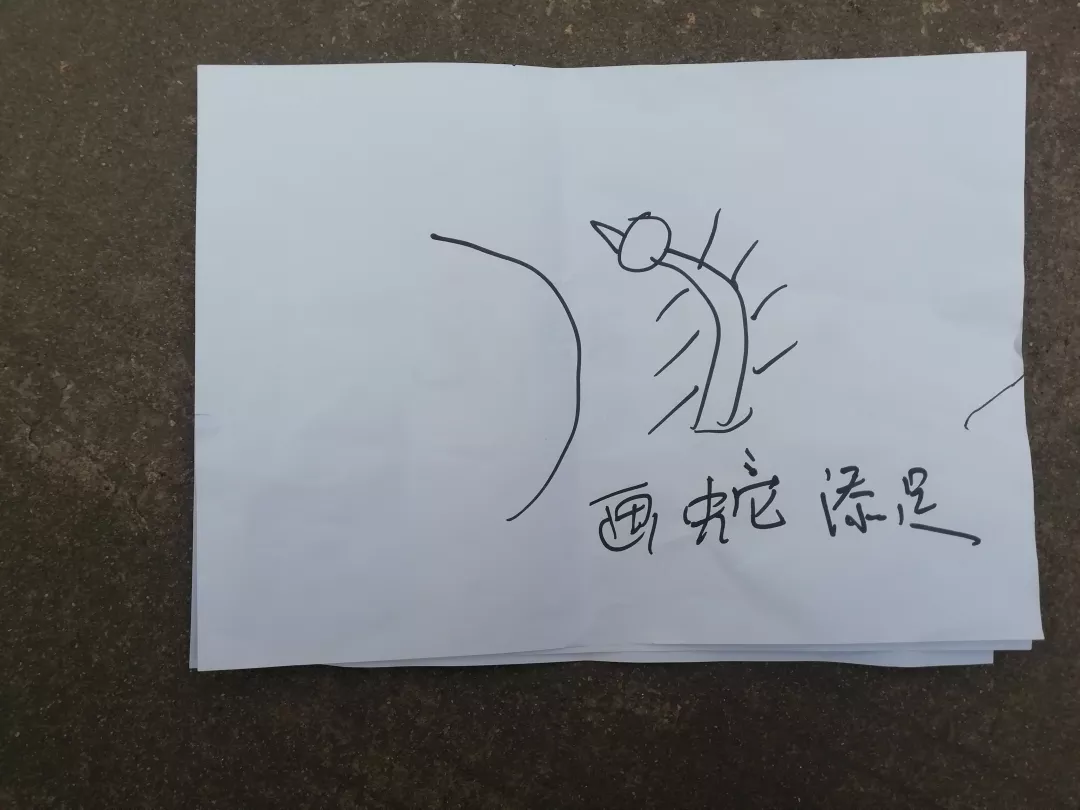 画蛇添足